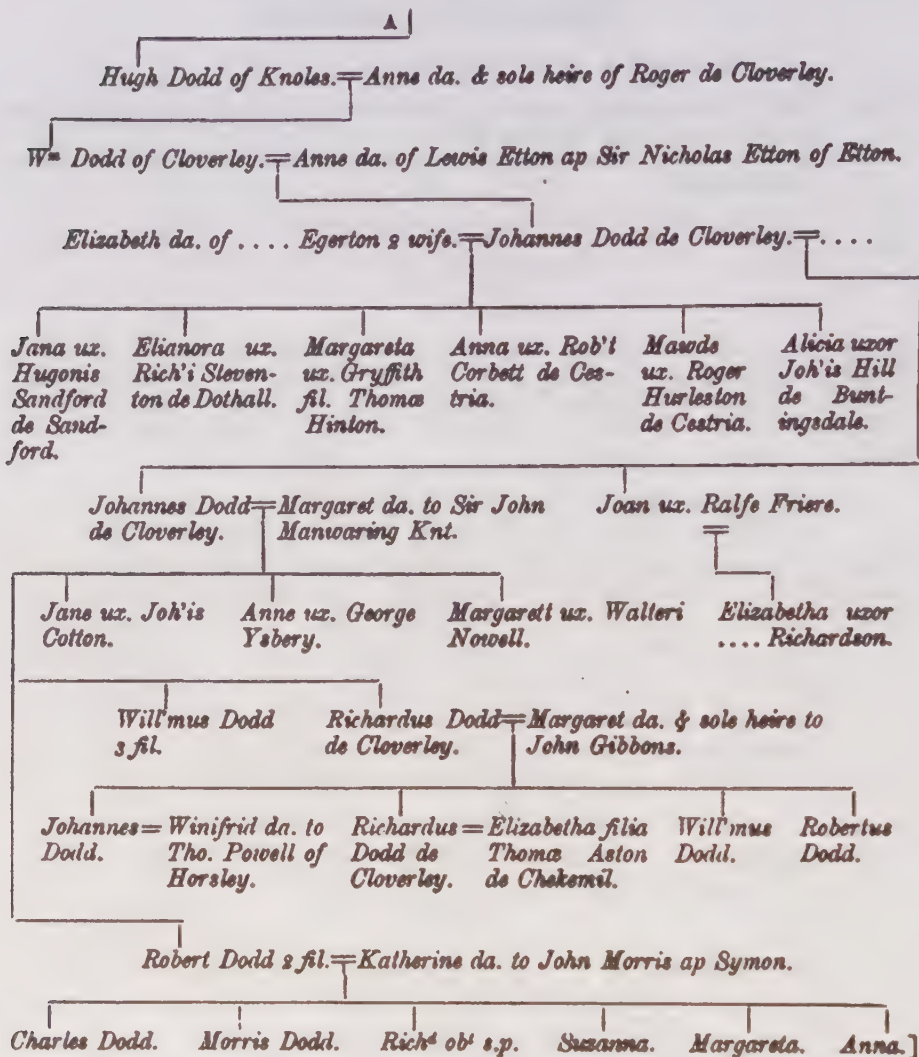 A
Hugh Dodd of Knoles. = Anne da. & sole heire of Roger de Cloverley.
Wᵐ Dodd of Cloverley. = Anne da. of Lewis Etton ap Sir Nicholas Etton of Etton.
Elizabeth da. of .... Egerton 2 wife. = Johannes Dodd de Cloverley. = ....
Jana ux.
Hugonis
Sandford
de Sand-
ford.
Elianora ux.
Rich'i Steven-
ton de Dothall.
Margareta
ux. Gryffith
fil. Thomæ
Hinton.
Anna ux. Rob't
Corbett de Ces-
tria.
Mawde
ux. Roger
Hurleston
de Cestria.
Alicia uxor
Joh'is Hill
de Bunt-
ingsdale.
Johannes Dodd =
de Cloverley.
Margaret da. to Sir John
Manwaring Knt.
Joan ux. Ralfe Friere.
=
Jane ux. Joh'is
Cotton.
Anne ux. George
Ysbery.
Margarett ux. Walteri
Nowell.
Elizabetha uxor
.... Richardson.
Will'mus Dodd
3 fil.
Richardus Dodd =
de Cloverley.
Margaret da. & sole heire to
John Gibbons.
Johannes =
Dodd.
Winifrid da. to
Tho. Powell of
Horsley.
Richardus =
Dodd de
Cloverley.
Elizabetha filia
Thomæ Aston
de Chekemil.
Will'mus
Dodd.
Robertus
Dodd.
Robert Dodd 2 fil. = Katherine da. to John Morris ap Symon.
Charles Dodd. Morris Dodd. Richᵈ obᵗ s.p. Suzanna. Margareta. Anna.